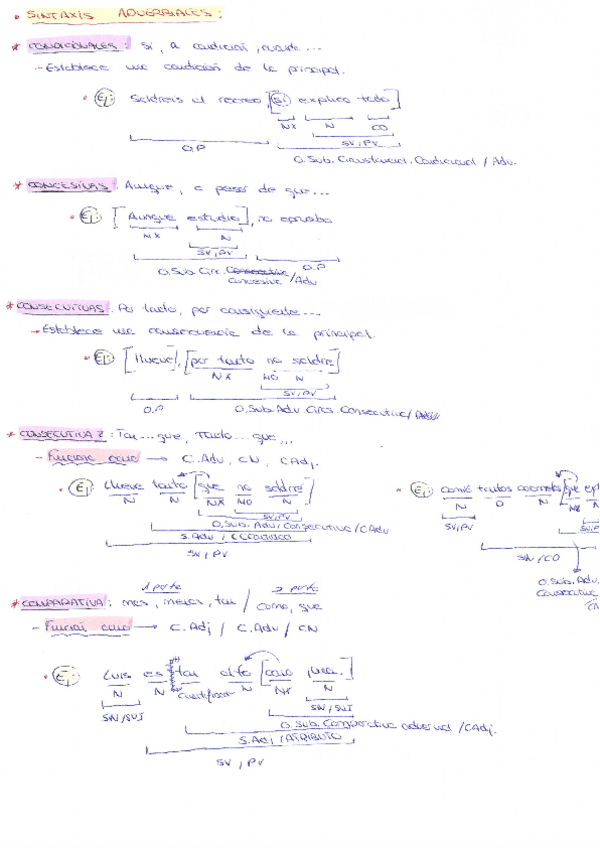 • SINTAXIS ADVERBIALES:
* CONDICIONALES: Si, a condición, cuando...
- Establece una condición de la principal.
• Ej: Saldreis al recreo, [si explico todo]
NX N CD
SV, PV
O.P
O. Sub. Circustancial. Condicional / Adv.
* CONCESIVAS: Aunque, a pesar de que...
• Ej: [Aunque estudio], no aprobo
NX N
SV, PV
O.Sub. Circ. Consecutiva O.P
Concesiva / Adv
* CONSECUTIVAS: Por tanto, por consiguiente...
- Establece una consecuencia de la principal.
• Ej: [llueve], [por tanto no saldre]
NX NO N
SV, PV
O.P O.Sub. Adv. Circs. Consecutiva /
* CONSECUTIVA 2: Tan...que, Tanto...que...
- Funcion como → C. Adv, CN, CAdj.
• Ej: llueve tanto [que no saldre]
N N NX NO N
SV, PV
O.Sub. Adv. Consecutiva / CAdv
S. Adv /
SV, PV
• Ej: comí tantos caramelos [que
N D N NX
SV, PV
SN / CD
O. Sub. Adv.
Consecutiva
1 parte 2 parte
* COMPARATIVA: mas, menos, tan / como, que
- Funcion como → C. Adj / C. Adv / CN
• Ej: Luis es tan alto [como Luisa.]
N N Cuantificador N NX N
SN / SUJ SN / SUJ
O. Sub. Comparativa adverbial / CAdj.
S. Adj / ATRIBUTO
SV, PV